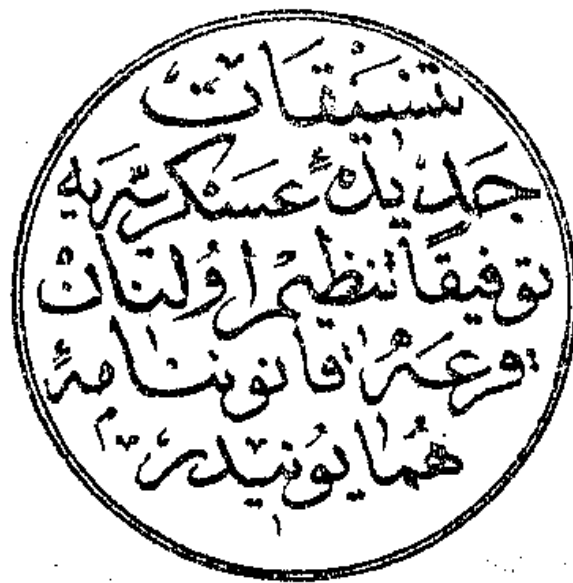 تنسيقات
جديدۀ عسكريه يه
توفيقا تنظيم اولنان
قرعه قانوننامۀ
همايونيدر